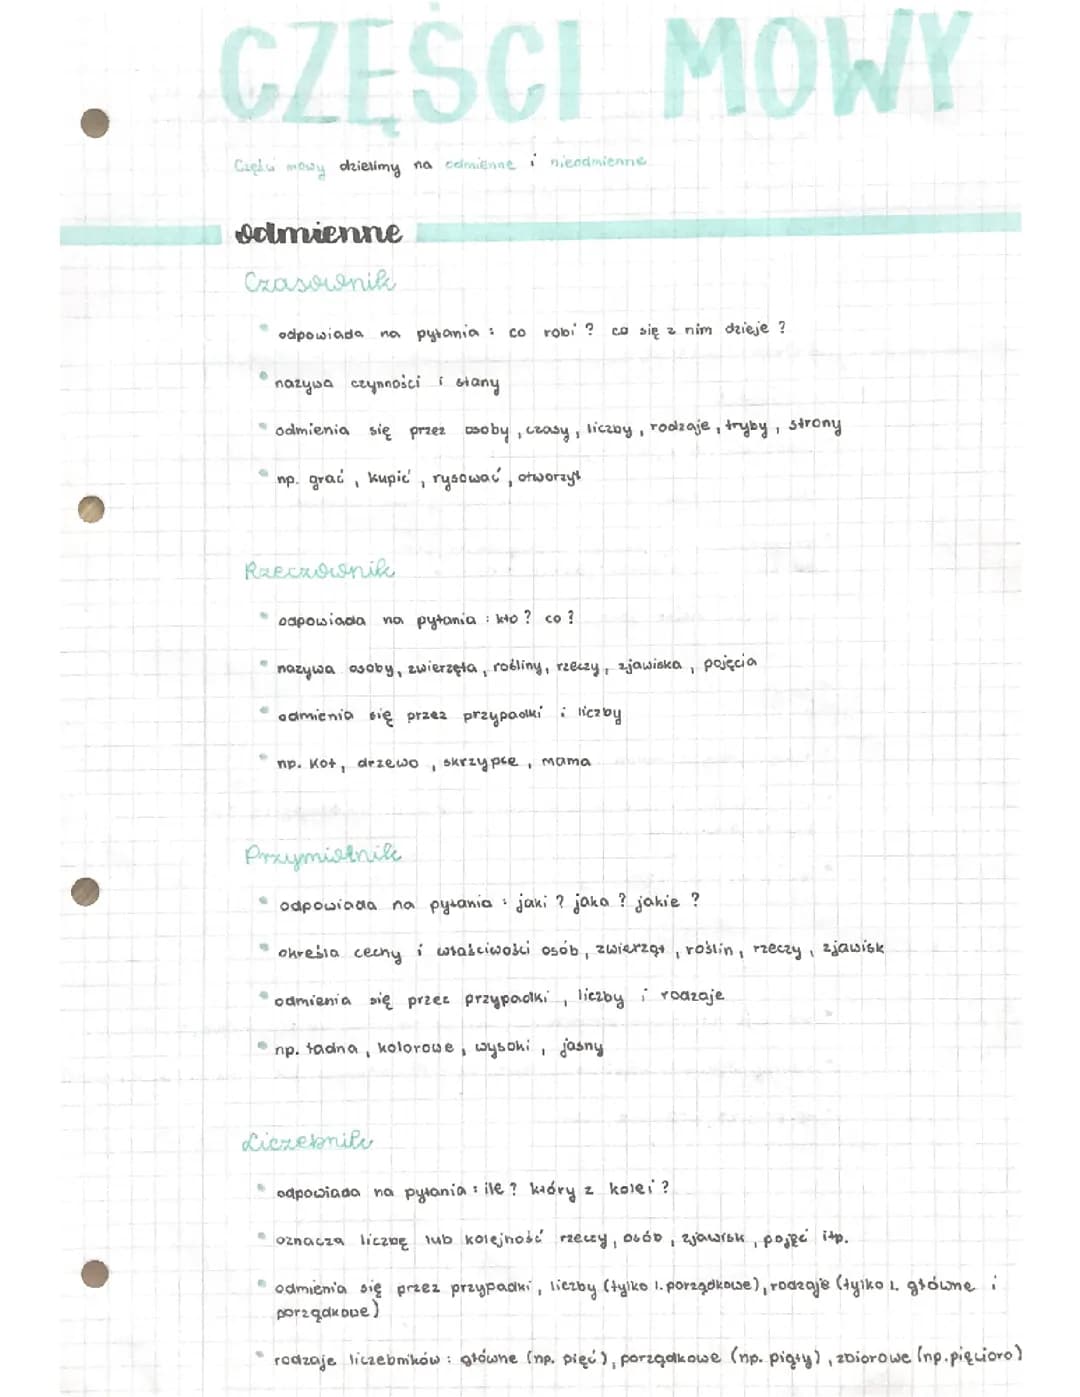 CZĘŚCI MOWY
Części mowy dzielimy na odmienne i nieodmienne
odmienne
Czasownik
• odpowiada na pytania : co robi ? co się z nim dzieje ?
• nazywa czynności i stany
• odmienia się przez osoby, czasy, liczby, rodzaje, tryby, strony
• np. grać, kupić, rysować, otworzył
Rzeczownik
• odpowiada na pytania : kto ? co ?
• nazywa osoby, zwierzęta, rośliny, rzeczy, zjawiska, pojęcia
• odmienia się przez przypadki i liczby
• np. kot, drzewo, skrzypce, mama
Przymiotnik
• odpowiada na pytania : jaki ? jaka ? jakie ?
• określa cechy i właściwości osób, zwierząt, roślin, rzeczy, zjawisk
• odmienia się przez przypadki, liczby i rodzaje
• np. ładna, kolorowe, wysoki, jasny
Liczebnik
• odpowiada na pytania : ile ? który z kolei ?
• oznacza liczbę lub kolejność rzeczy, osób, zjawisk, pojęć itp.
• odmienia się przez przypadki, liczby (tylko l. porządkowe), rodzaje (tylko l. główne i
porządkowe)
• rodzaje liczebników : główne (np. pięć), porządkowe (np. piąty), zbiorowe (np. pięcioro)